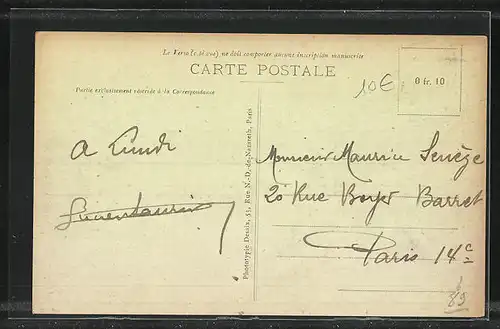 Le Verso (adresse), ne doit comporter aucune inscription manuscrite
CARTE POSTALE
10€
0 fr. 10
Partie exclusivement réservée à la Correspondance
A Lundi
Monsieur Maurice Senège
20 Rue Boyer Barret
Paris 14e
Phototypie Desaix, 51, Rue N.-D. de-Nazareth, Paris